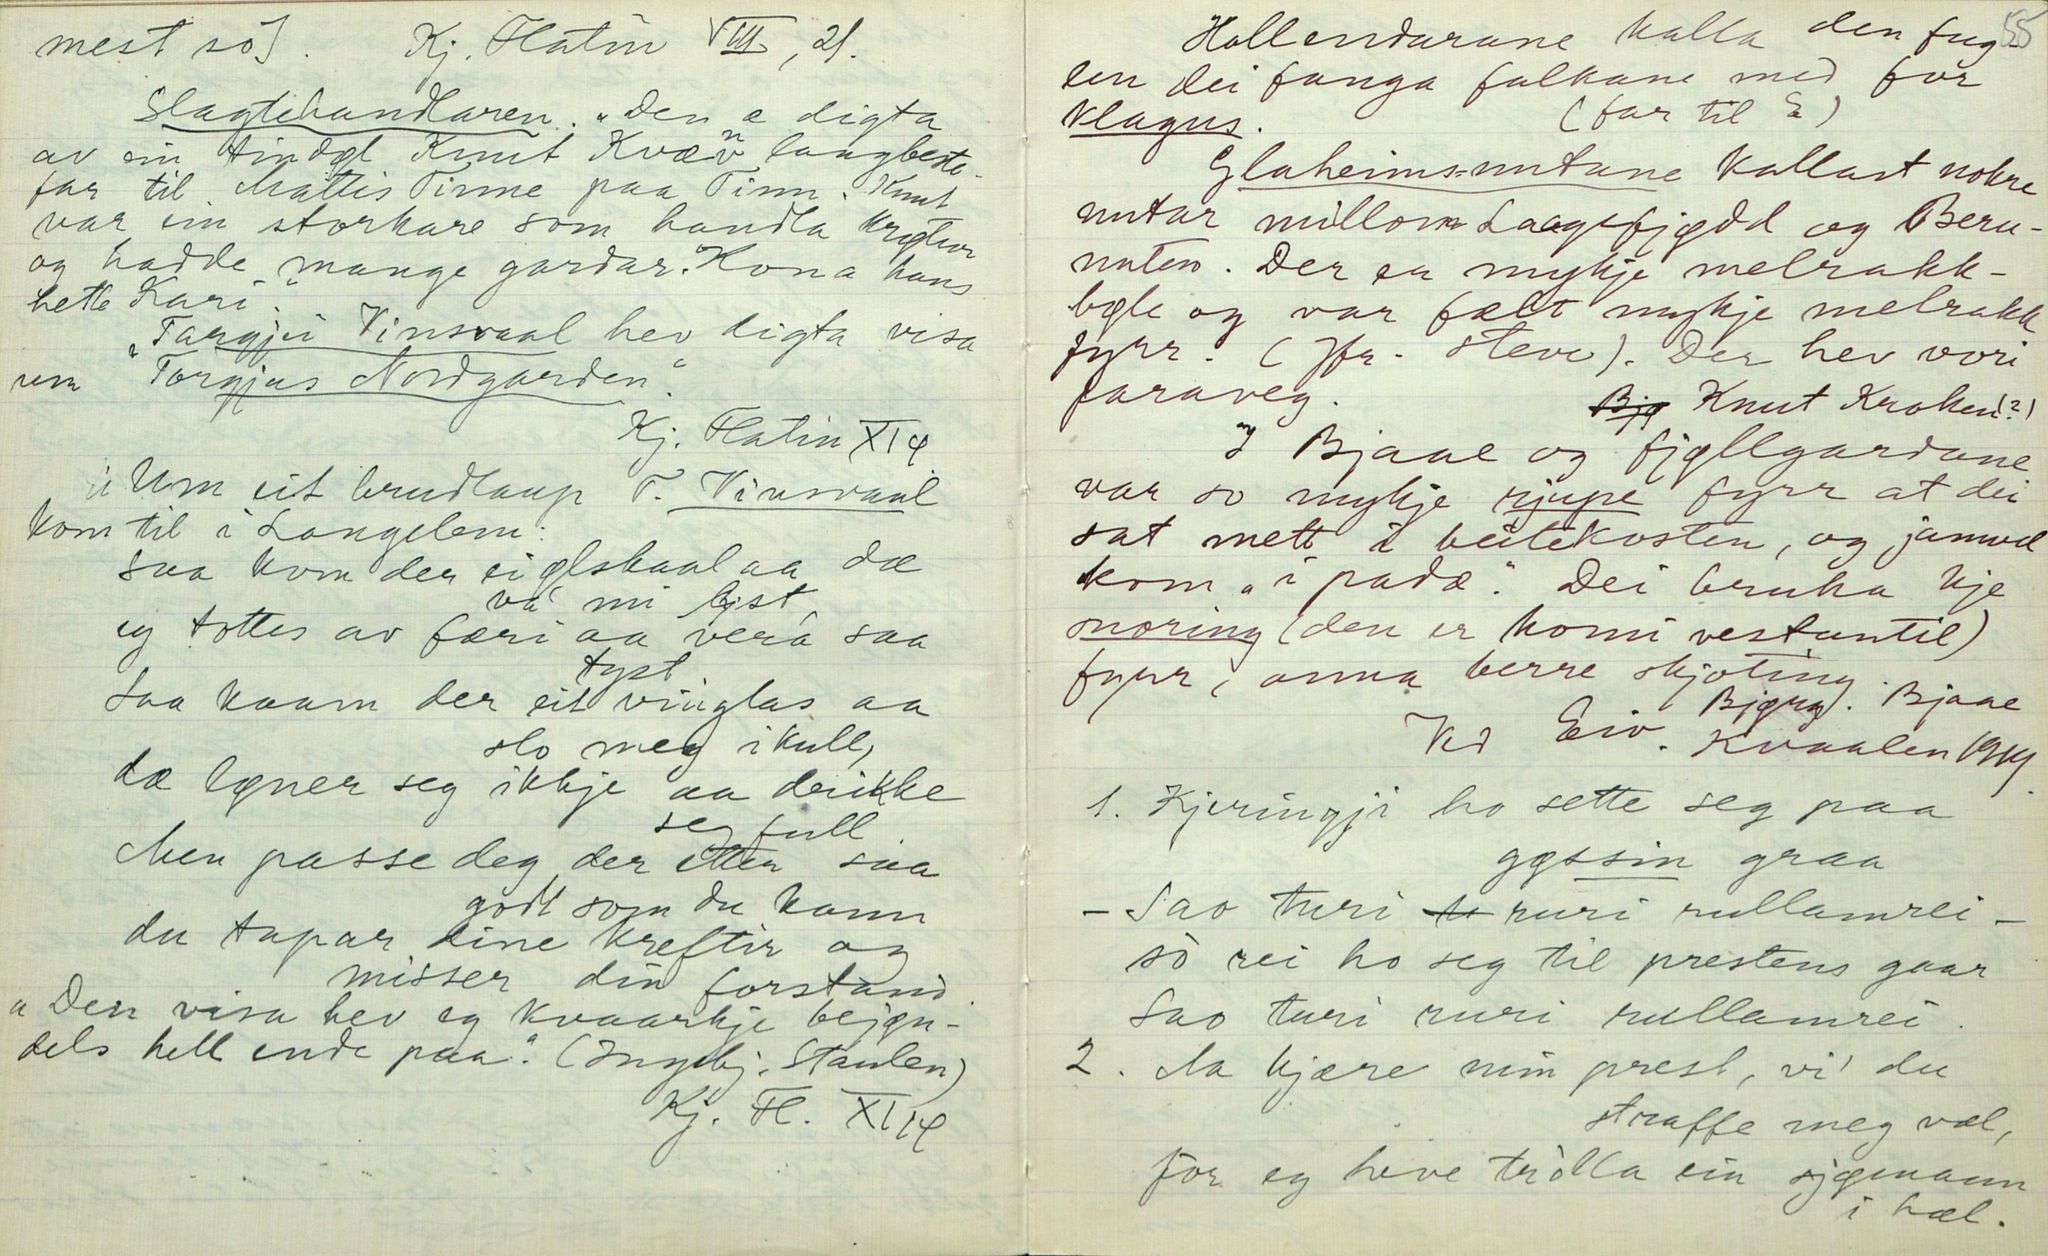 mest so]. Kj. Flatin VIII, 21.
Slagtehandlaren. "Den e digta
av ein tindøl Knut Kvæv langbeste-
far til Mattis Tinne paa Tinn. Knut
var ein storkare som handla krøter
og hadde mange gardar. Kona hans
hette Kari.
"Targjei Vinsvaal hev digta visa
um "Torgjus Nordgarden".
Kj. Flatin XI 4
Um eit brudlaup T. Vinsvaal
kom til i Langelem:
Saa kom der ei ølskaal aa dæ
va' mi lyst,
eg tottes av færi aa vera saa
tyst
Saa kaam der eit vinglas aa
slo meg ikull,
dæ løner seg ikkje aa drikke
seg full.
Men passe deg der etter saa
godt som du kann
du tapar dine kreftir og
misser din forstand.
"Den visa hev eg kvaarkje bejøn-
dels hell ende paa". (Ingebj. Staulen)
Kj. Fl. XI 14
55
Hollendarane kalla den fug-
len dei fanga falkane med for
klagus. (far til E)
Glaheims-nutane kallast nokre
nutar millom Laagefjødd og Beru-
nuten. Der er mykje melrakk-
bøle og var fælt mykje melrakk
fyrr. (Jfr. steve). Der hev vori
faraveg. Bjø Knut Kroken(?)
I Bjaae og fjøllgardane
var so mykje rjupe fyrr at dei
sat mett i beitekosten, og jamvel
kom "i padæ". Dei bruka kje
snoring (den er komi vestantil)
fyrr, anna berre skjoting.
Bjørg. Bjaae
Ved Eiv. Kvaalen 1919.
1. Kjeringji ho sette seg paa
gøssin graa
- Sao turi tu ruri rullamrei -
so rei ho seg til prestens gaar
Sao turi ruri rullamrei.
2. Aa kjære min prest, vi' du
straffe meg væl,
for eg heve trolla ein sjømann
i hæl.